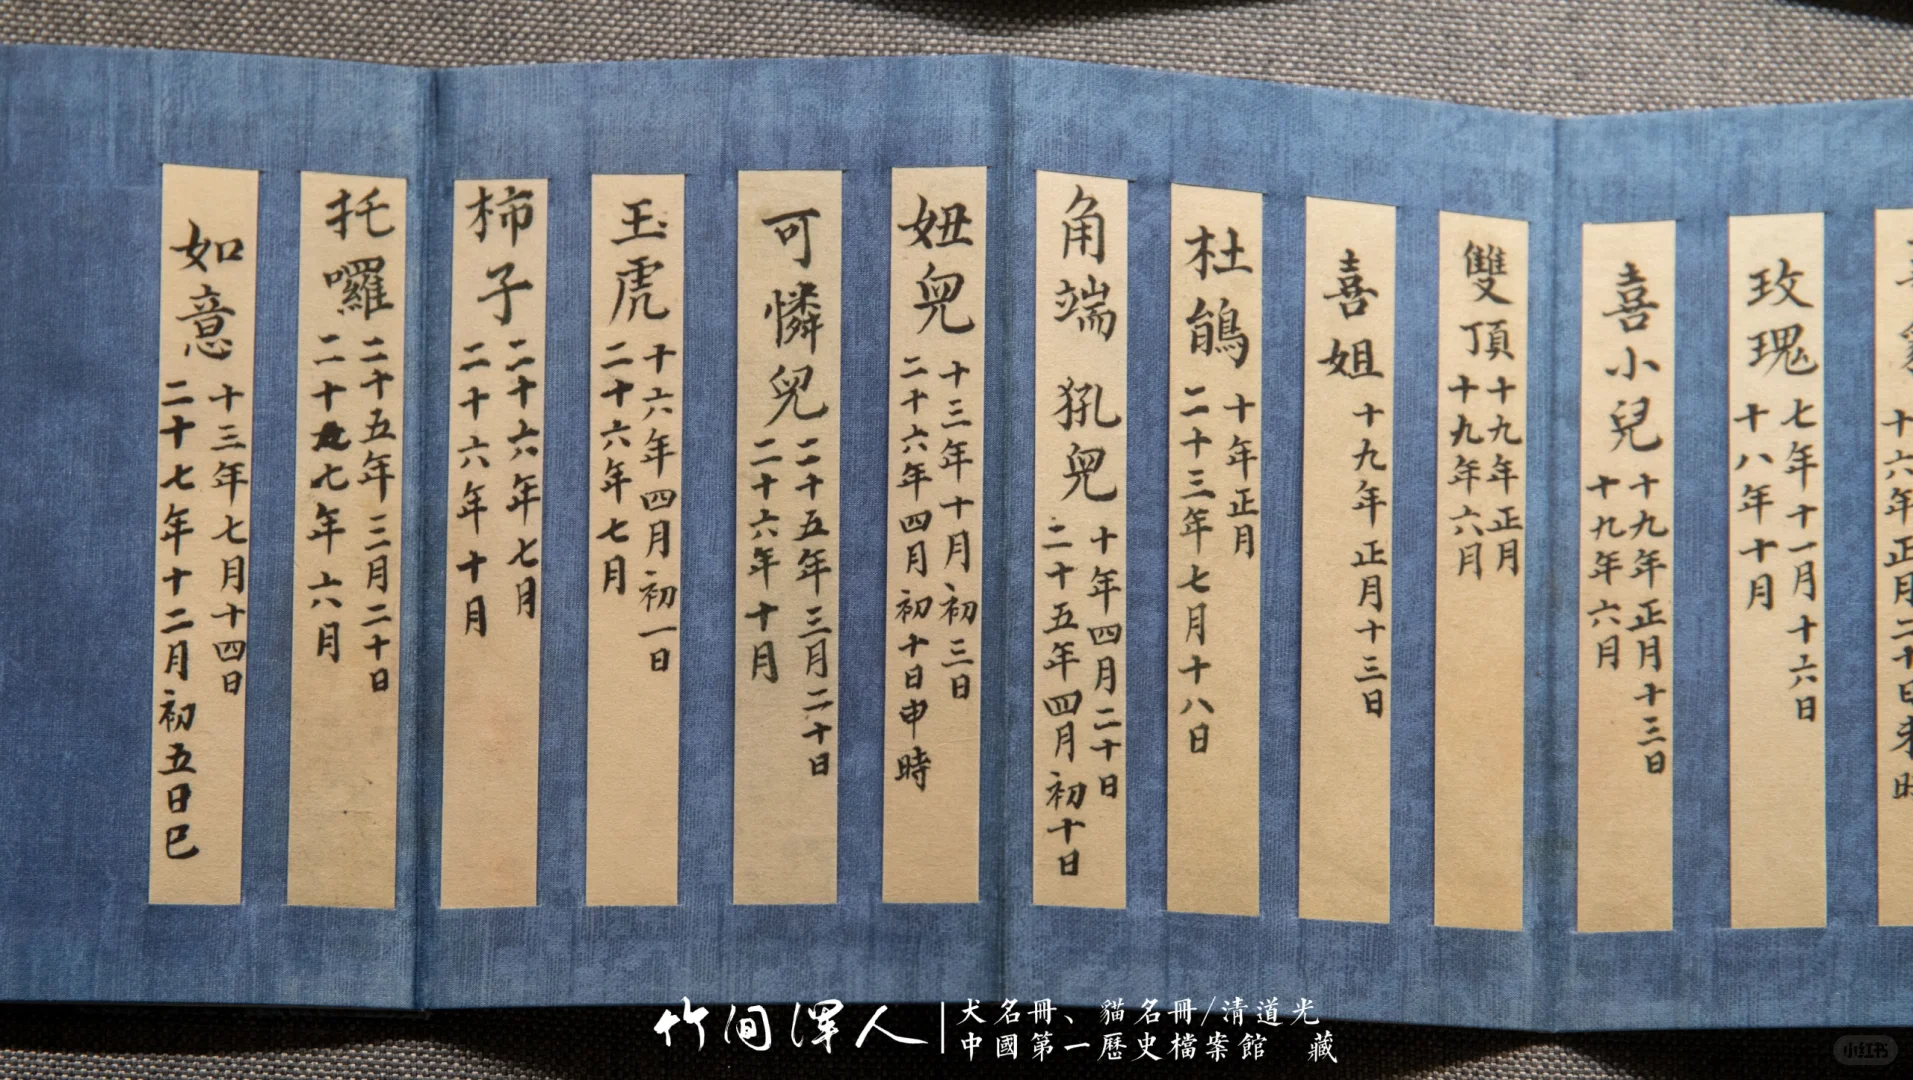 玫瑰
七年十一月十六日
十八年十月
喜小兒
十九年正月十三日
十九年六月
雙頂
十九年正月
十九年六月
喜姐
十九年正月十三日
杜鵑
十年正月
二十三年七月十八日
角端 犼兒
十年四月二十日
二十五年四月初十日
妞兒
十三年十月初三日
二十六年四月初十日申時
可憐兒
二十五年三月二十日
二十六年十月
玉虎
十六年四月初一日
二十六年七月
柿子
二十六年七月
二十六年十月
托囉
二十五年三月二十日
二十七年六月
如意
十三年七月十四日
二十七年十二月初五日巳
竹間澤人
犬名冊、貓名冊/清道光
中國第一歷史檔案館 藏
小红书